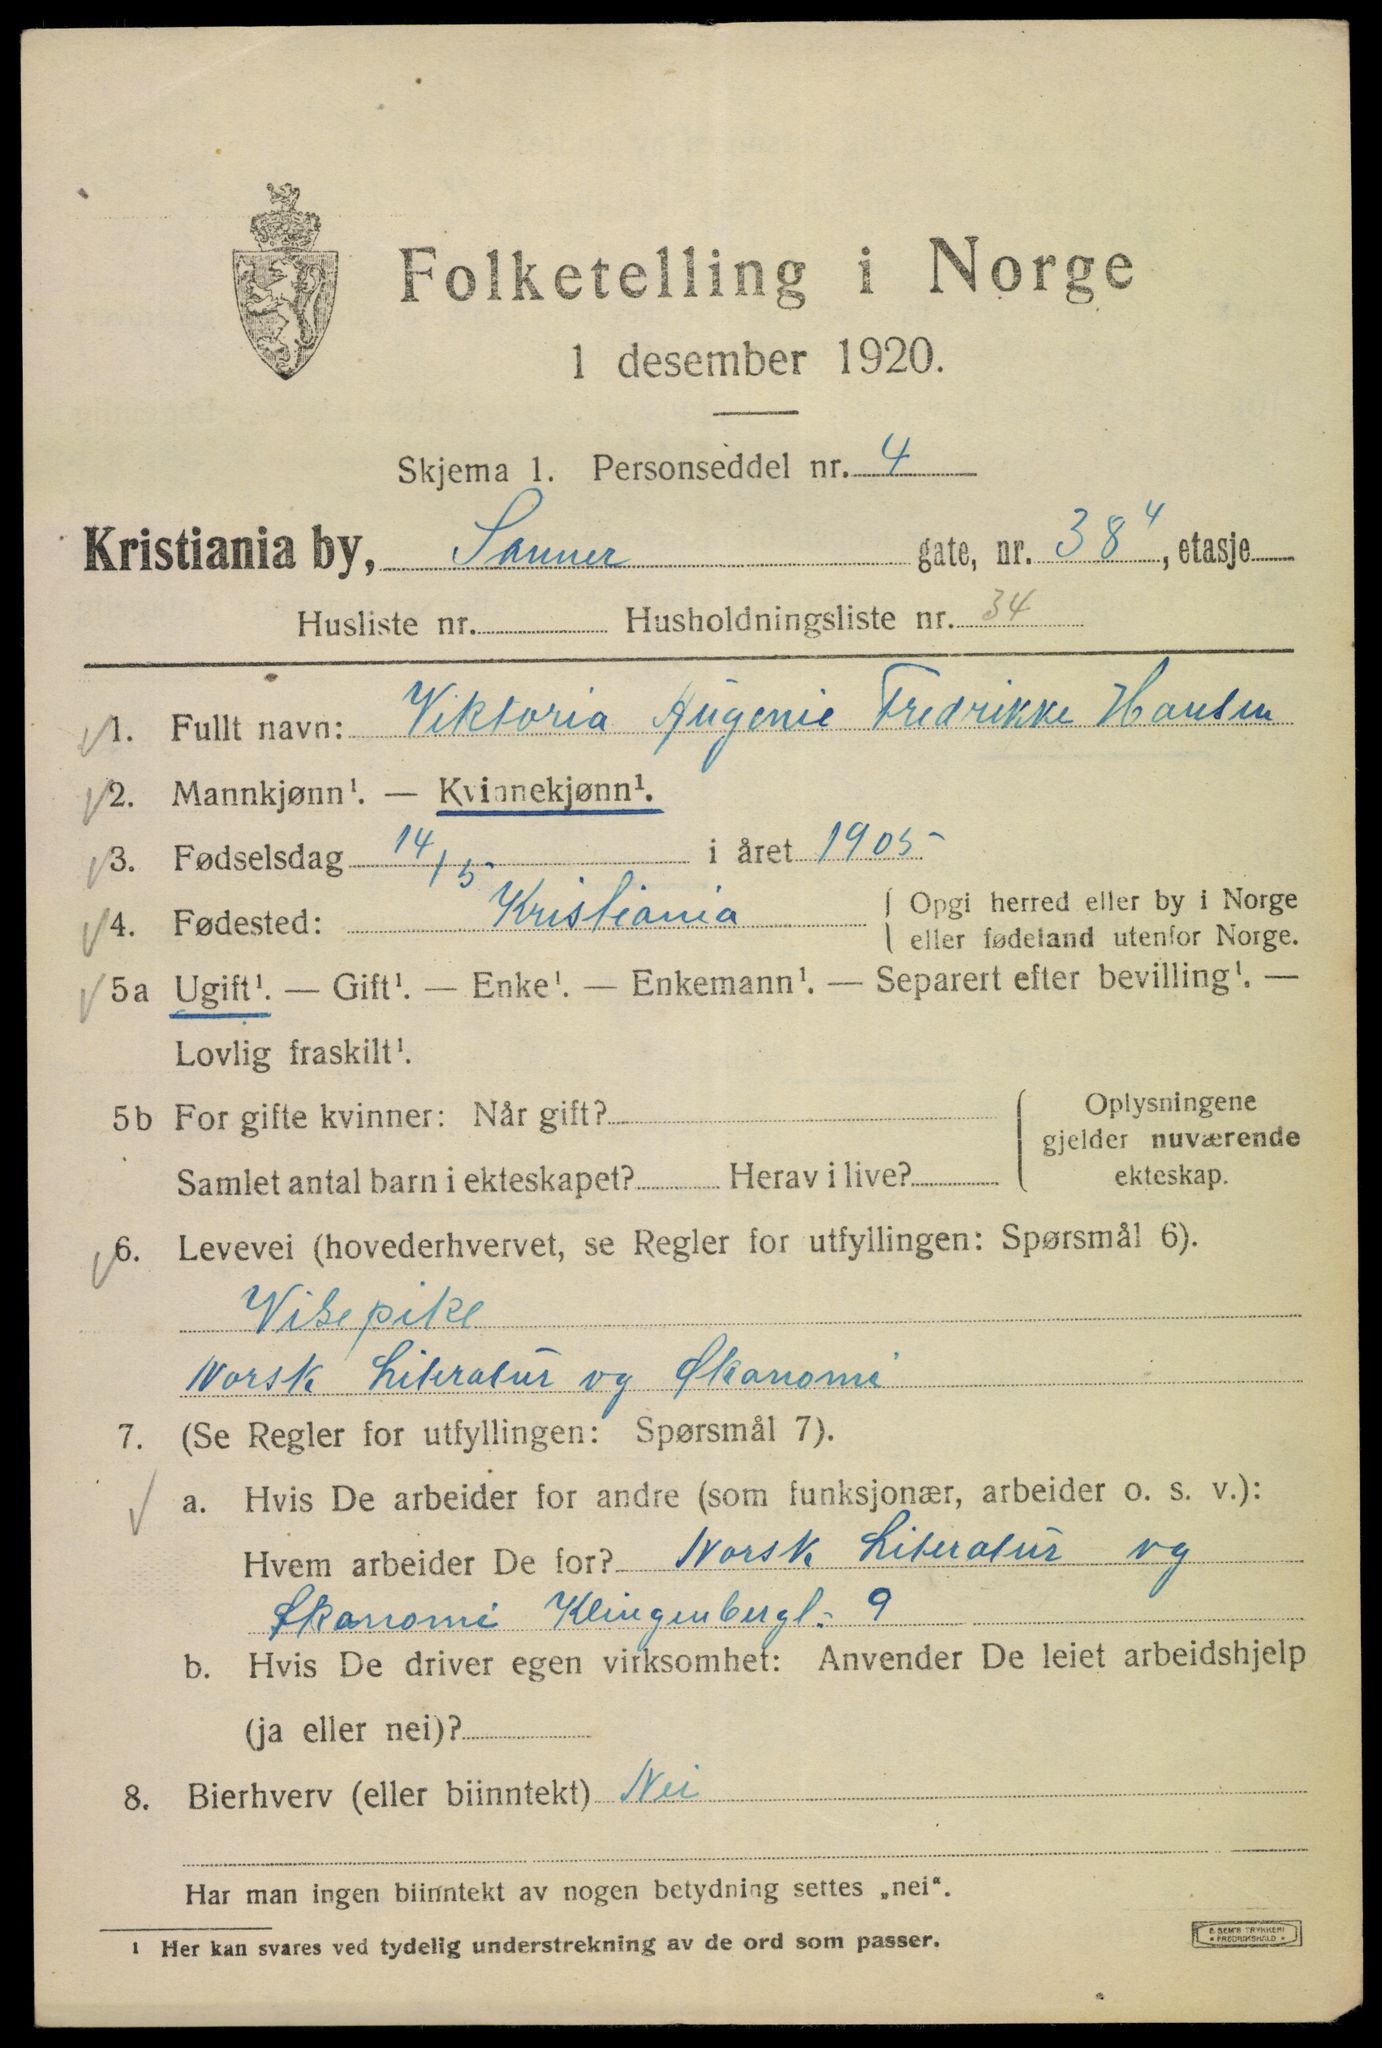 Folketelling i Norge
1 desember 1920.
Skjema 1. Personseddel nr. 4
Kristiania by, Sanner gate, nr. 38⁴, etasje
Husliste nr. Husholdningsliste nr. 34
1. Fullt navn: Viktoria Augenie Fredrikke Hansen
2. Mannkjønn¹. — Kvinnekjønn¹.
3. Fødselsdag 14/5 i året 1905
4. Fødested: Kristiania { Opgi herred eller by i Norge
eller fødeland utenfor Norge.
5a Ugift¹. — Gift¹. — Enke¹. — Enkemann¹. — Separert efter bevilling¹. —
Lovlig fraskilt¹.
5b For gifte kvinner: Når gift?
Samlet antal barn i ekteskapet? Herav i live?
{ Oplysningene
gjelder nuværende
ekteskap.
6. Levevei (hovederhvervet, se Regler for utfyllingen: Spørsmål 6).
Visepike
Norsk Literatur og Økonomi
7. (Se Regler for utfyllingen: Spørsmål 7).
a. Hvis De arbeider for andre (som funksjonær, arbeider o. s. v.):
Hvem arbeider De for? Norsk Literatur og
Økonomi Klingenbergt: 9
b. Hvis De driver egen virksomhet: Anvender De leiet arbeidshjelp
(ja eller nei)?
8. Bierhverv (eller biinntekt) Nei
Har man ingen biinntekt av nogen betydning settes „nei“.
¹ Her kan svares ved tydelig understrekning av de ord som passer.
E. SEM'S TRYKKERI
* FREDRIKSHALD *